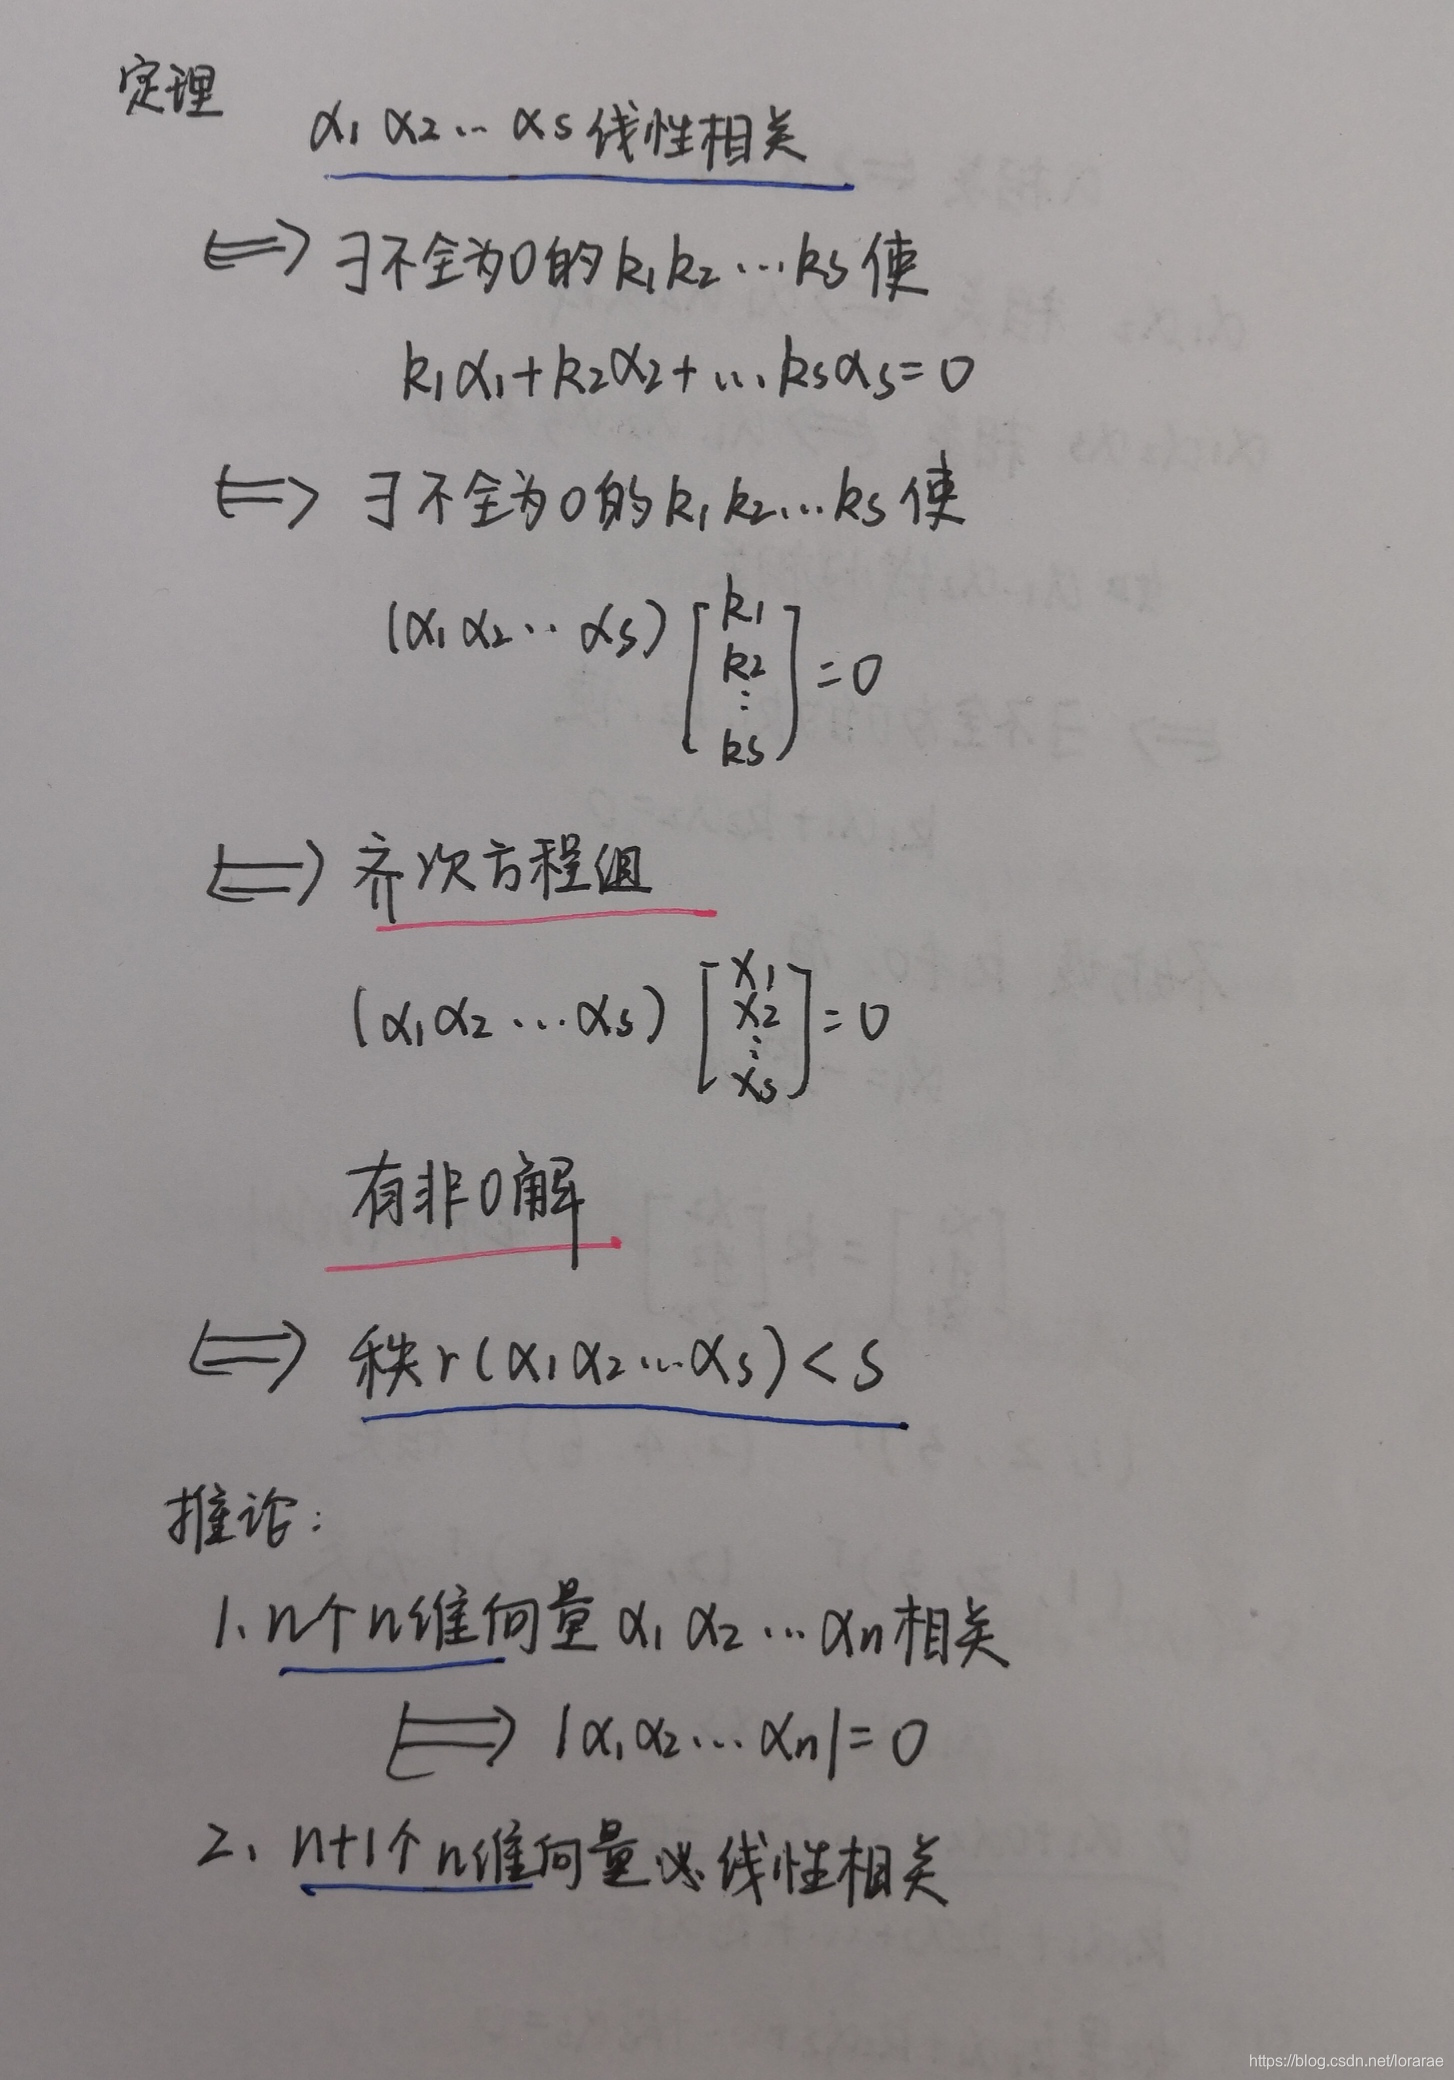 定理
α₁ α₂ ·· αs 线性相关
⟺ ∃不全为0的 k₁ k₂ ··· ks 使
k₁α₁+k₂α₂+...ksαs=0
⟺ ∃不全为0的 k₁ k₂...ks 使
(α₁ α₂ ·· αs) [k₁ k₂ ⋮ ks] =0
⟺ 齐次方程组
(α₁ α₂ ... αs) [x₁ x₂ ⋮ xs] =0
有非0解
⟺ 秩 r(α₁ α₂ ... αs) < s
推论:
1、n个n维向量 α₁ α₂ ... αn 相关
⟺ |α₁ α₂ ... αn|=0
2、n+1个n维向量必线性相关
https://blog.csdn.net/lorarae